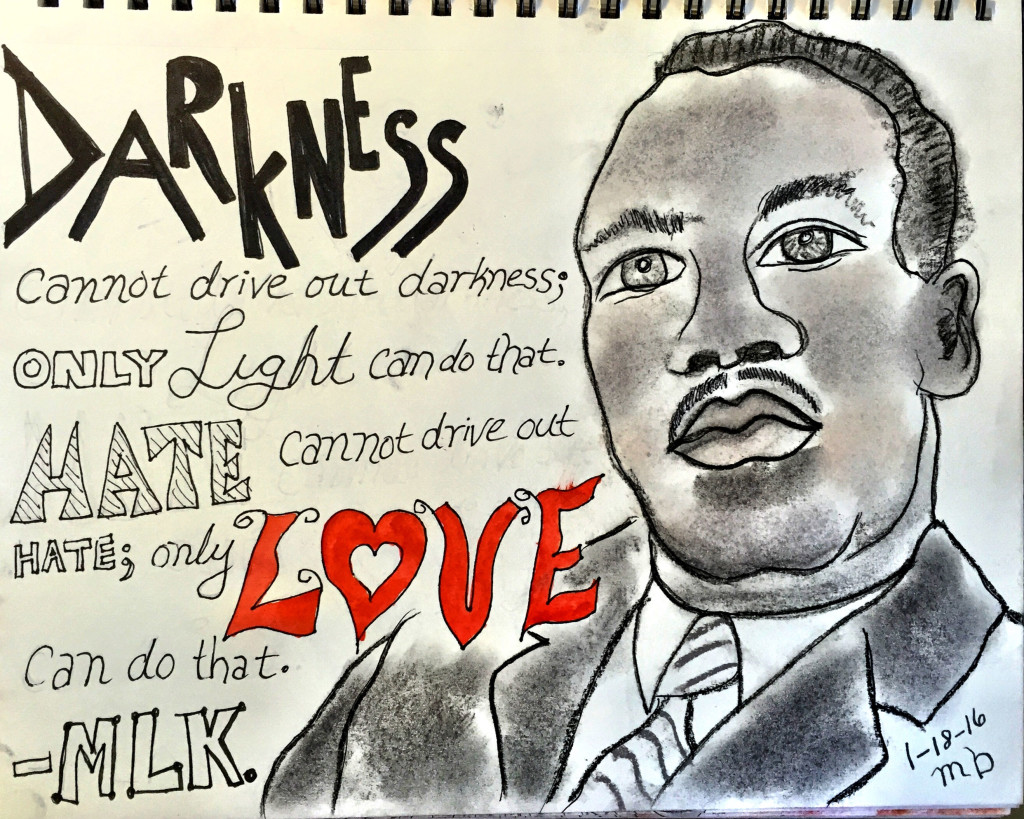 DARKNESS
Cannot drive out darkness;
ONLY Light can do that.
HATE cannot drive out
HATE; only LOVE
Can do that.
-MLK.
1-18-16
MB